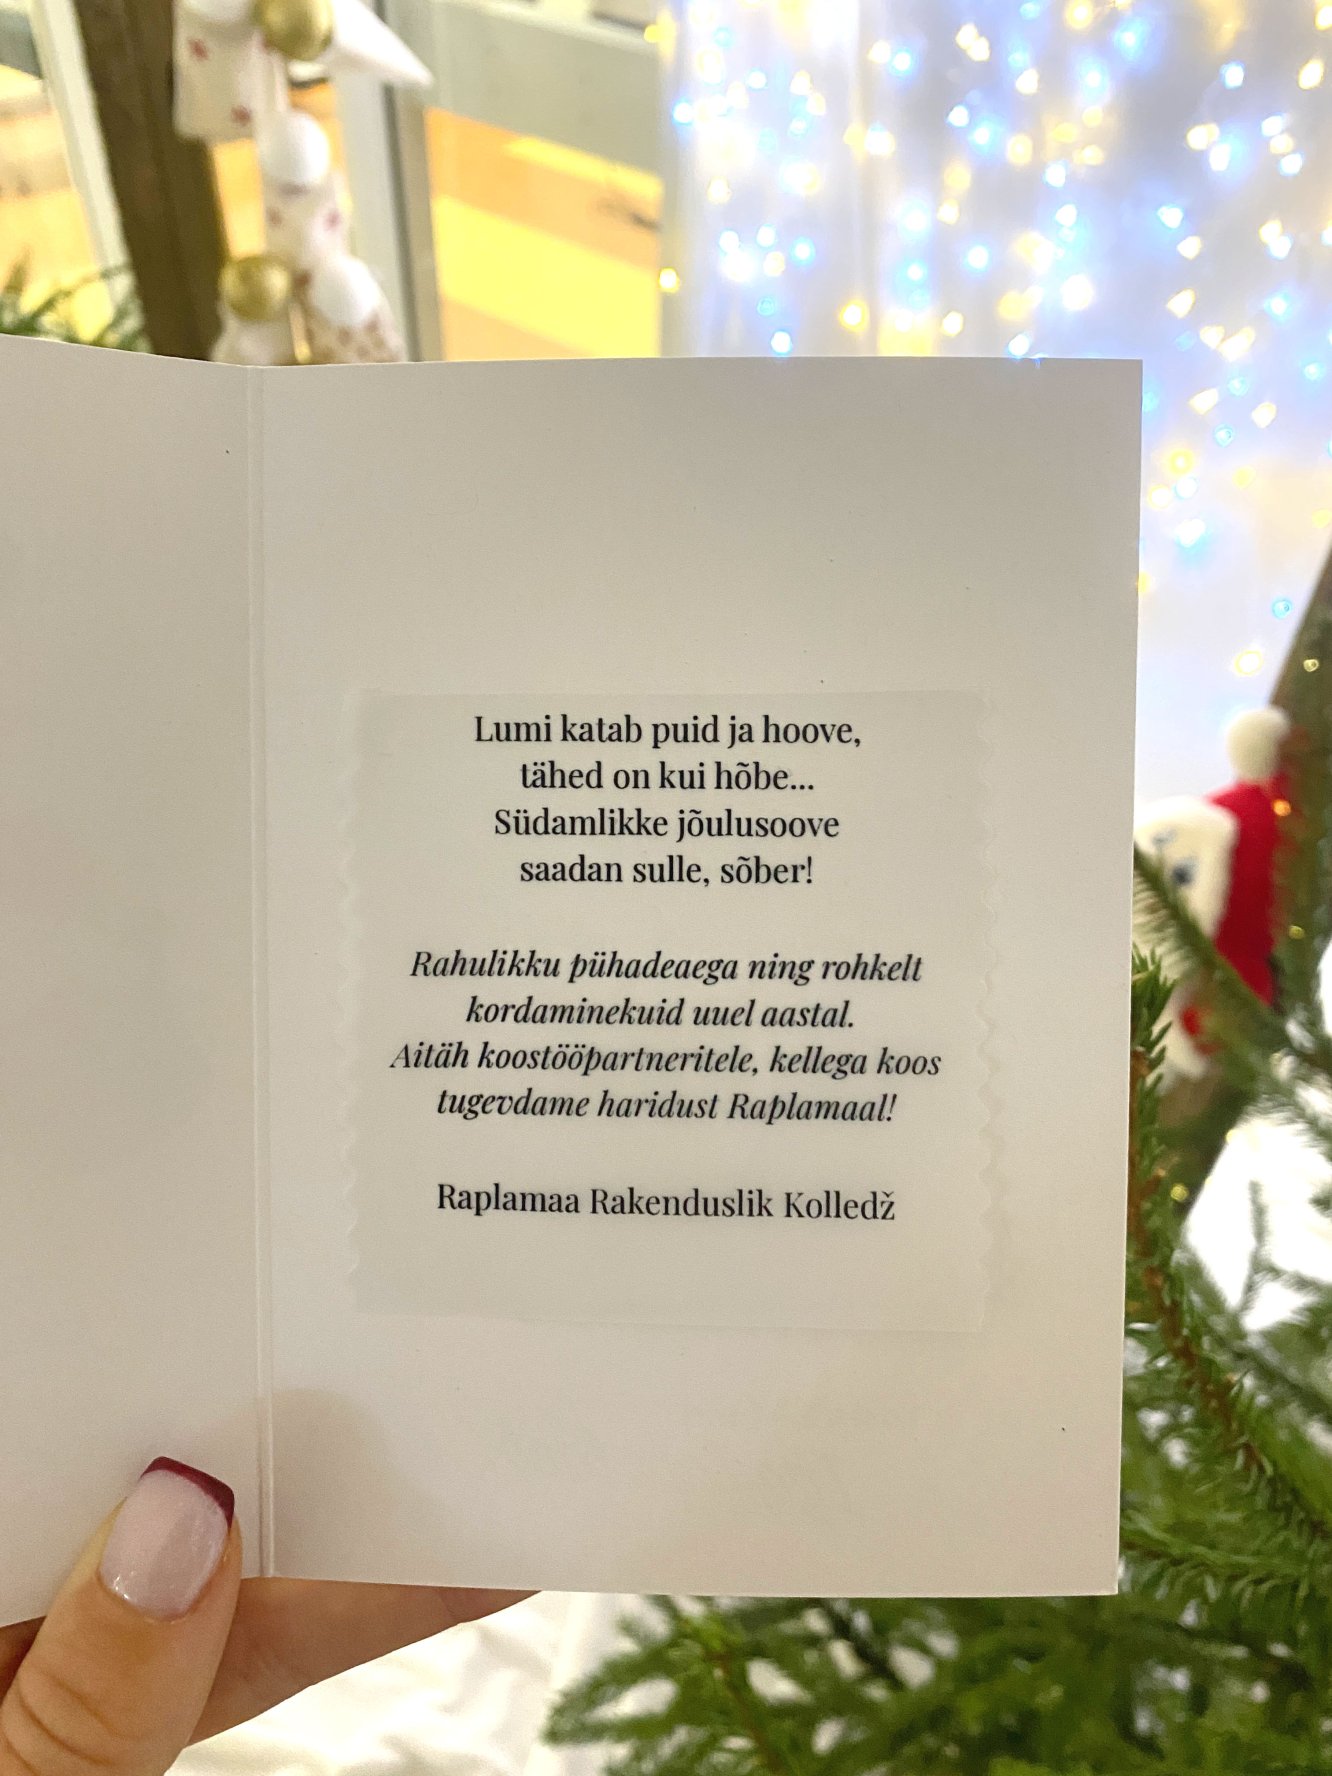 Lumi katab puid ja hoove,
tähed on kui hõbe...
Südamlikke jõulusoove
saadan sulle, sõber!
Rahulikku pühadeaega ning rohkelt
kordaminekuid uuel aastal.
Aitäh koostööpartneritele, kellega koos
tugevdame haridust Raplamaal!
Raplamaa Rakenduslik Kolledž